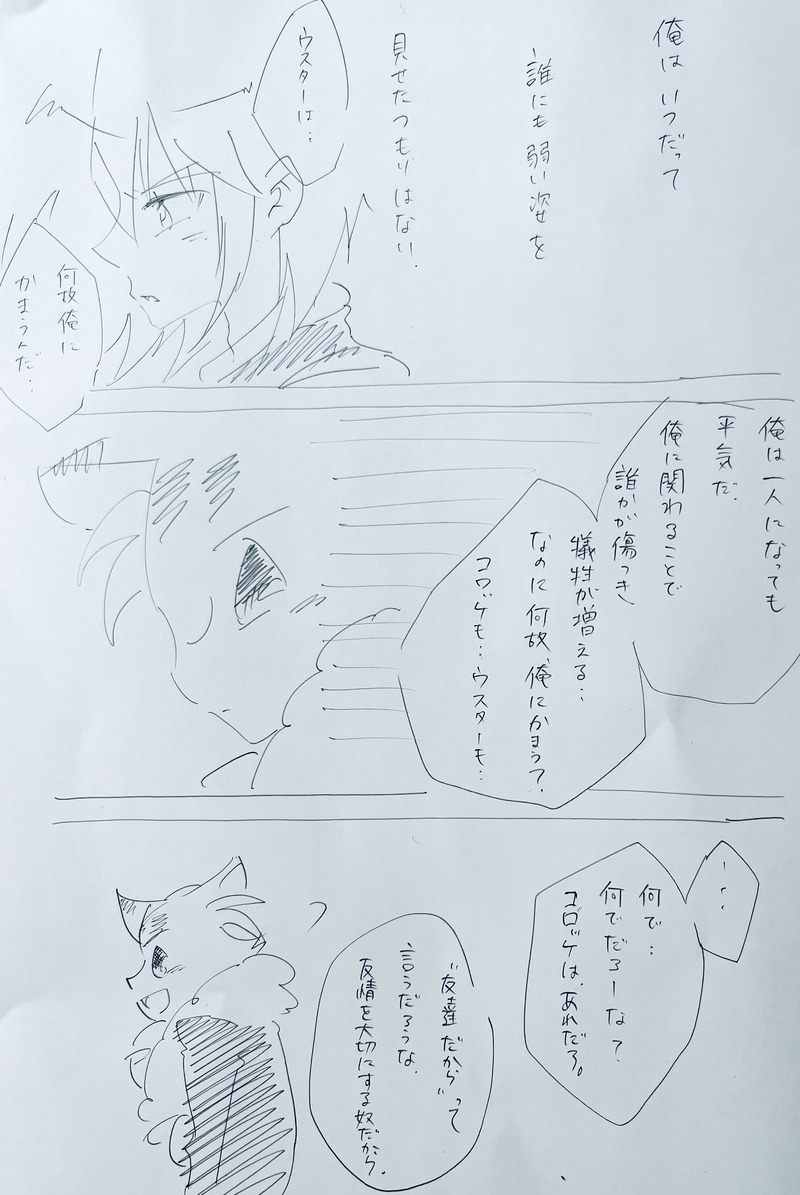 俺はいつだって
誰にも弱い姿を
見せたつもりはない.
ウスターは…
何故俺に
かまうんだ…
俺は一人になっても
平気だ.
俺に関わることで
誰かが傷つき
犠牲が増える…
なのに何故、俺にかまう?.
コロッケも…ウスターも…
…
何で…
何でだろーな?
コロッケは、あれだろ。
"友達だから"って
言うだろうな.
友情を大切にする奴だから.
?